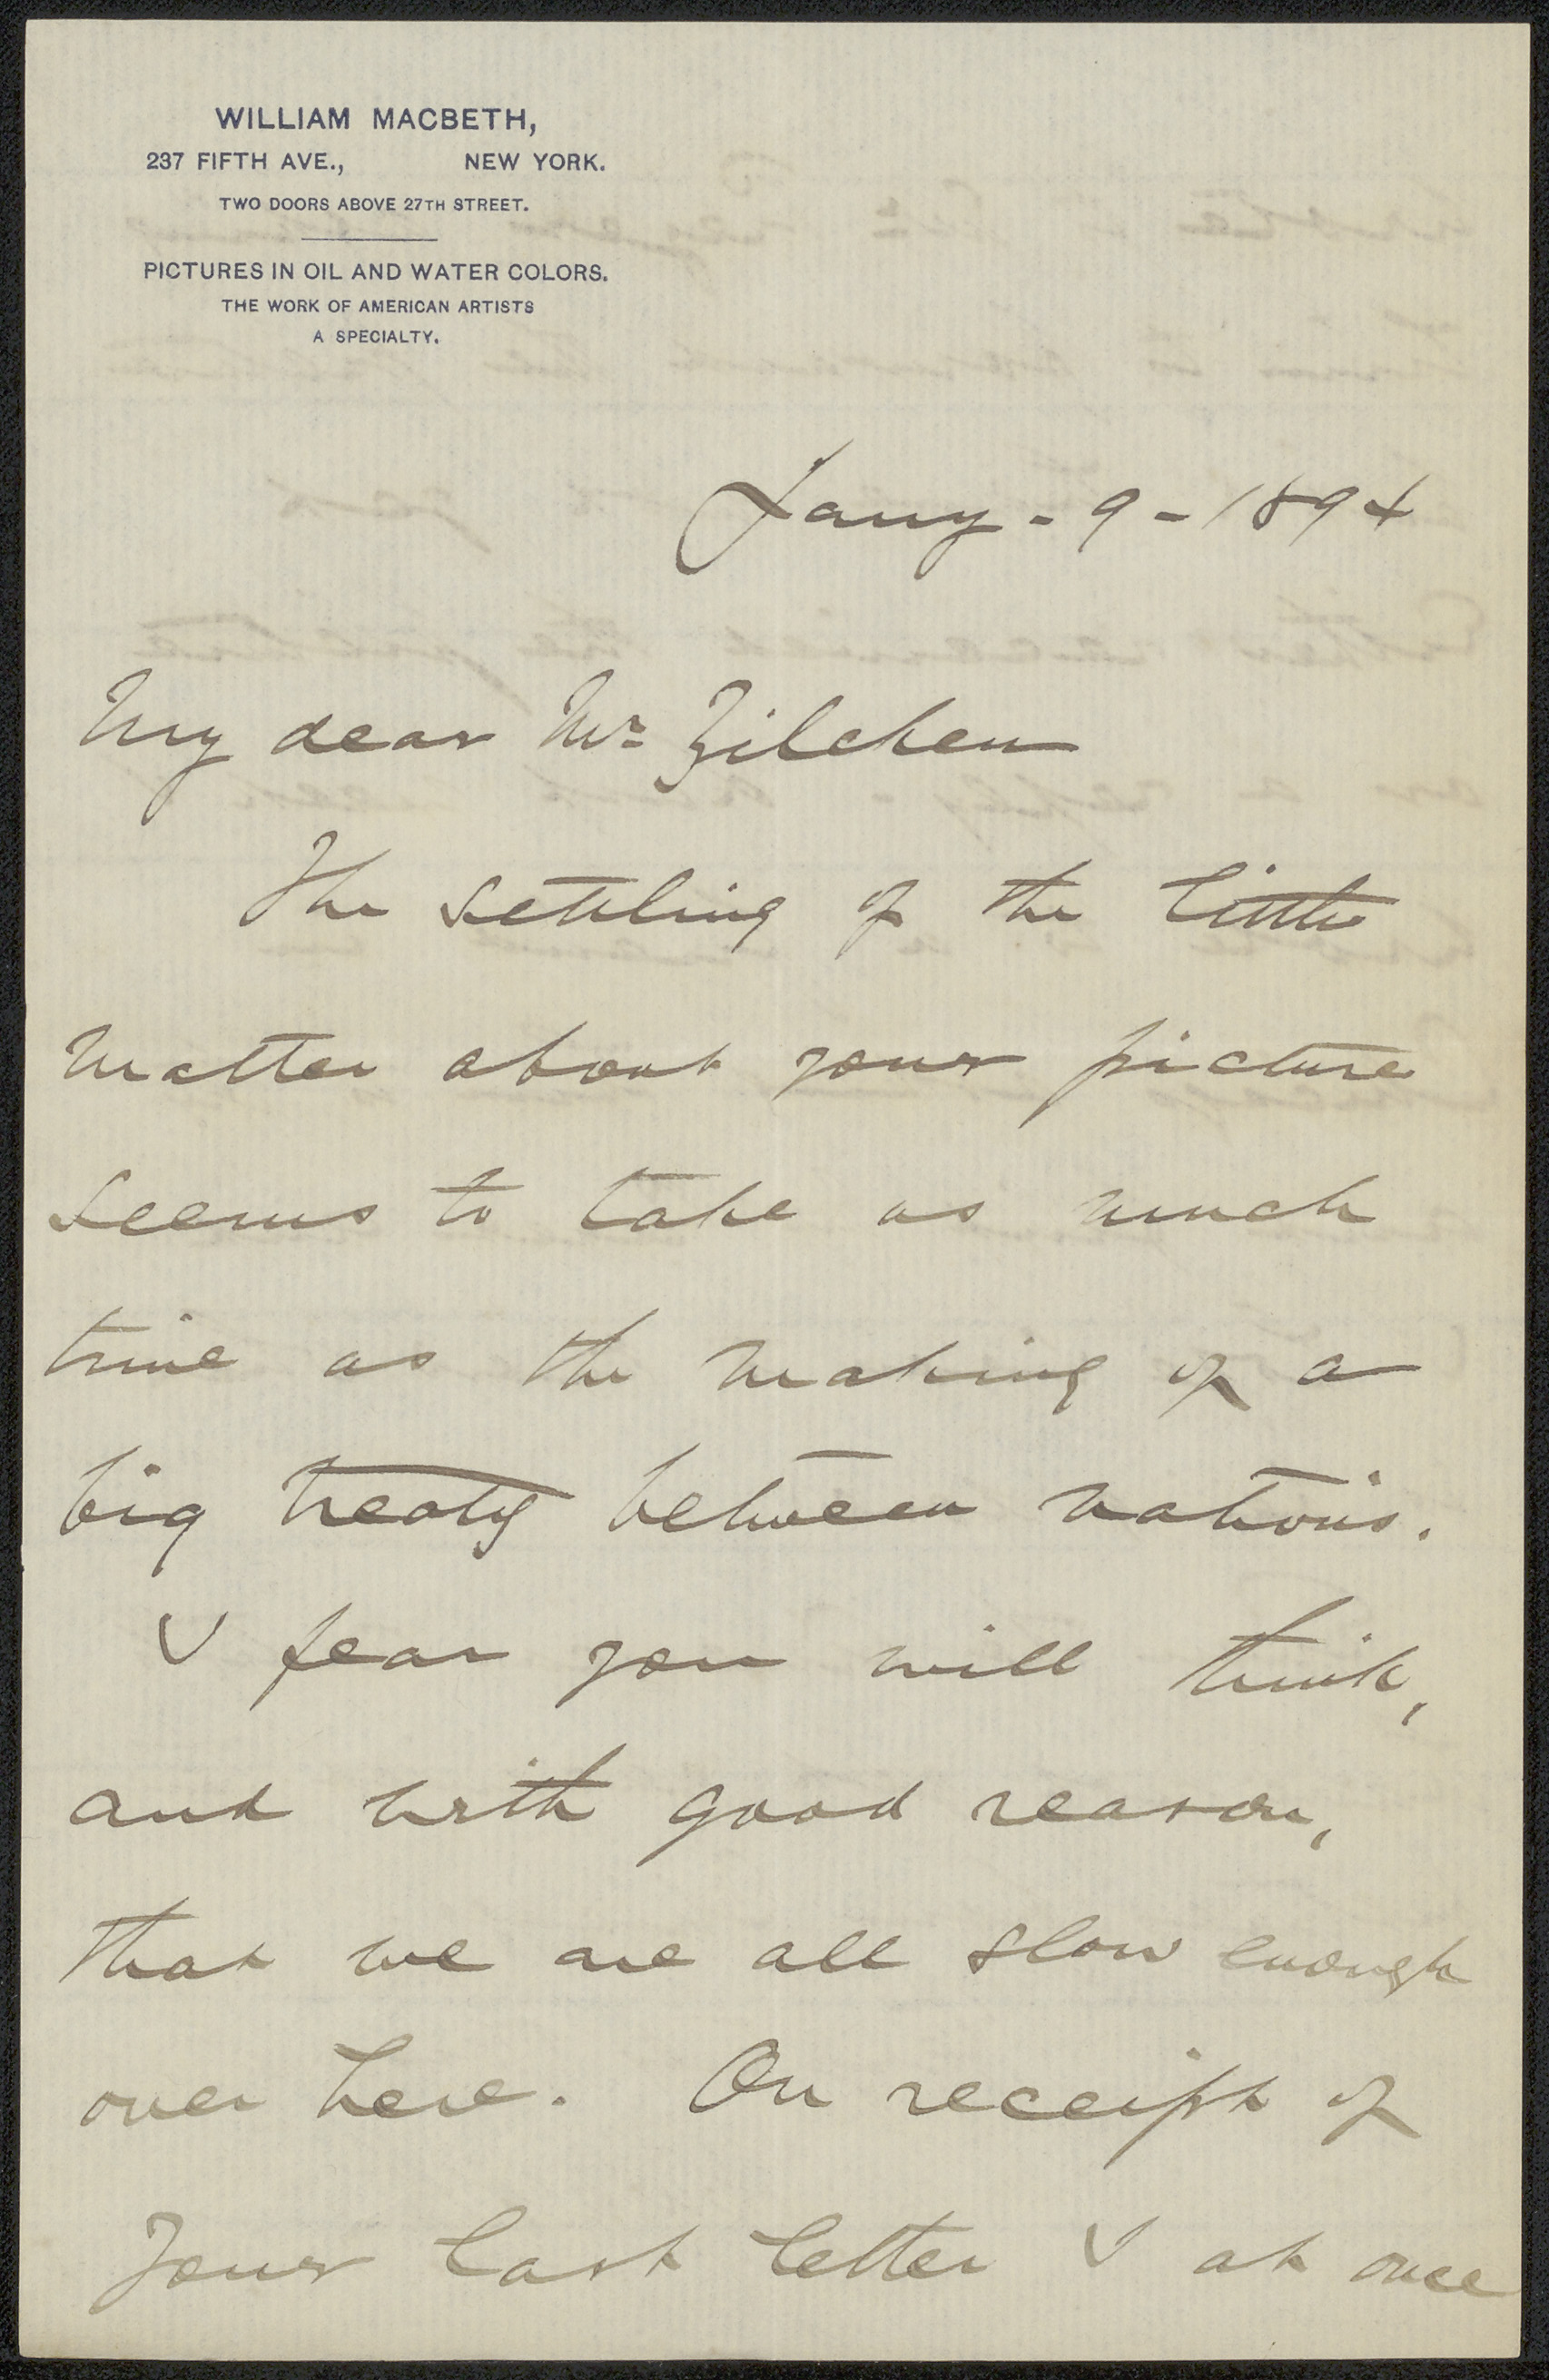 WILLIAM MACBETH,
237 FIFTH AVE., NEW YORK.
TWO DOORS ABOVE 27TH STREET.
PICTURES IN OIL AND WATER COLORS.
THE WORK OF AMERICAN ARTISTS
A SPECIALTY.
Jany - 9 - 1894
My dear Mr. Zilcken
The settling of the little
matter about your picture
seems to take as much
time as the making of a
big treaty between nations.
I fear you will think,
and with good reason,
that we are all slow enough
over here. On receipt of
your last letter I at once